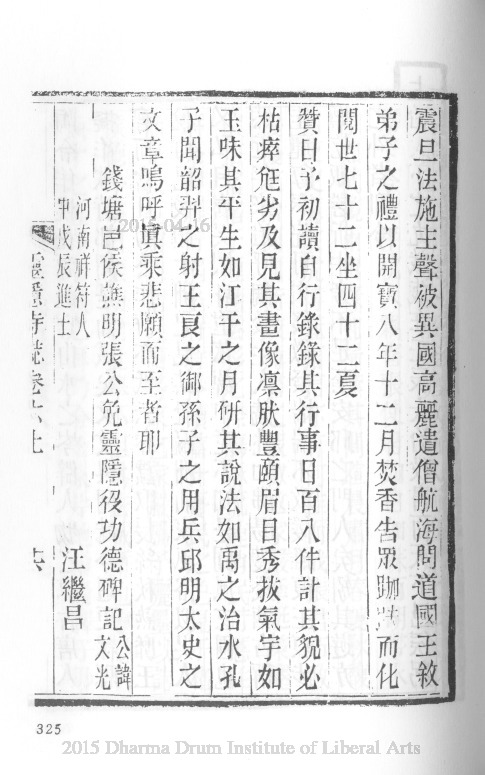 震旦法施主聲被異國高麗遣僧航海問道國王敘
弟子之禮以開寶八年十二月焚香告眾跏趺而化
閱世七十二坐四十二夏
贊曰予初讀自行錄錄其行事日百八件計其貌必
枯瘁尫劣及見其畫像凛肰豐頤眉目秀拔氣宇如
玉味其平生如江干之月研其說法如禹之治水孔
子聞韶羿之射王良之御孫子之用兵邱明太史之
文章嗚呼真乘悲願而至者耶
錢塘邑侯譙明張公免靈隱役功德碑記 公諱文光
河南祥符人
中戊辰進士
汪繼昌
靈隱寺誌卷六上
六
325
2015-04-16
2015 Dharma Drum Institute of Liberal Arts